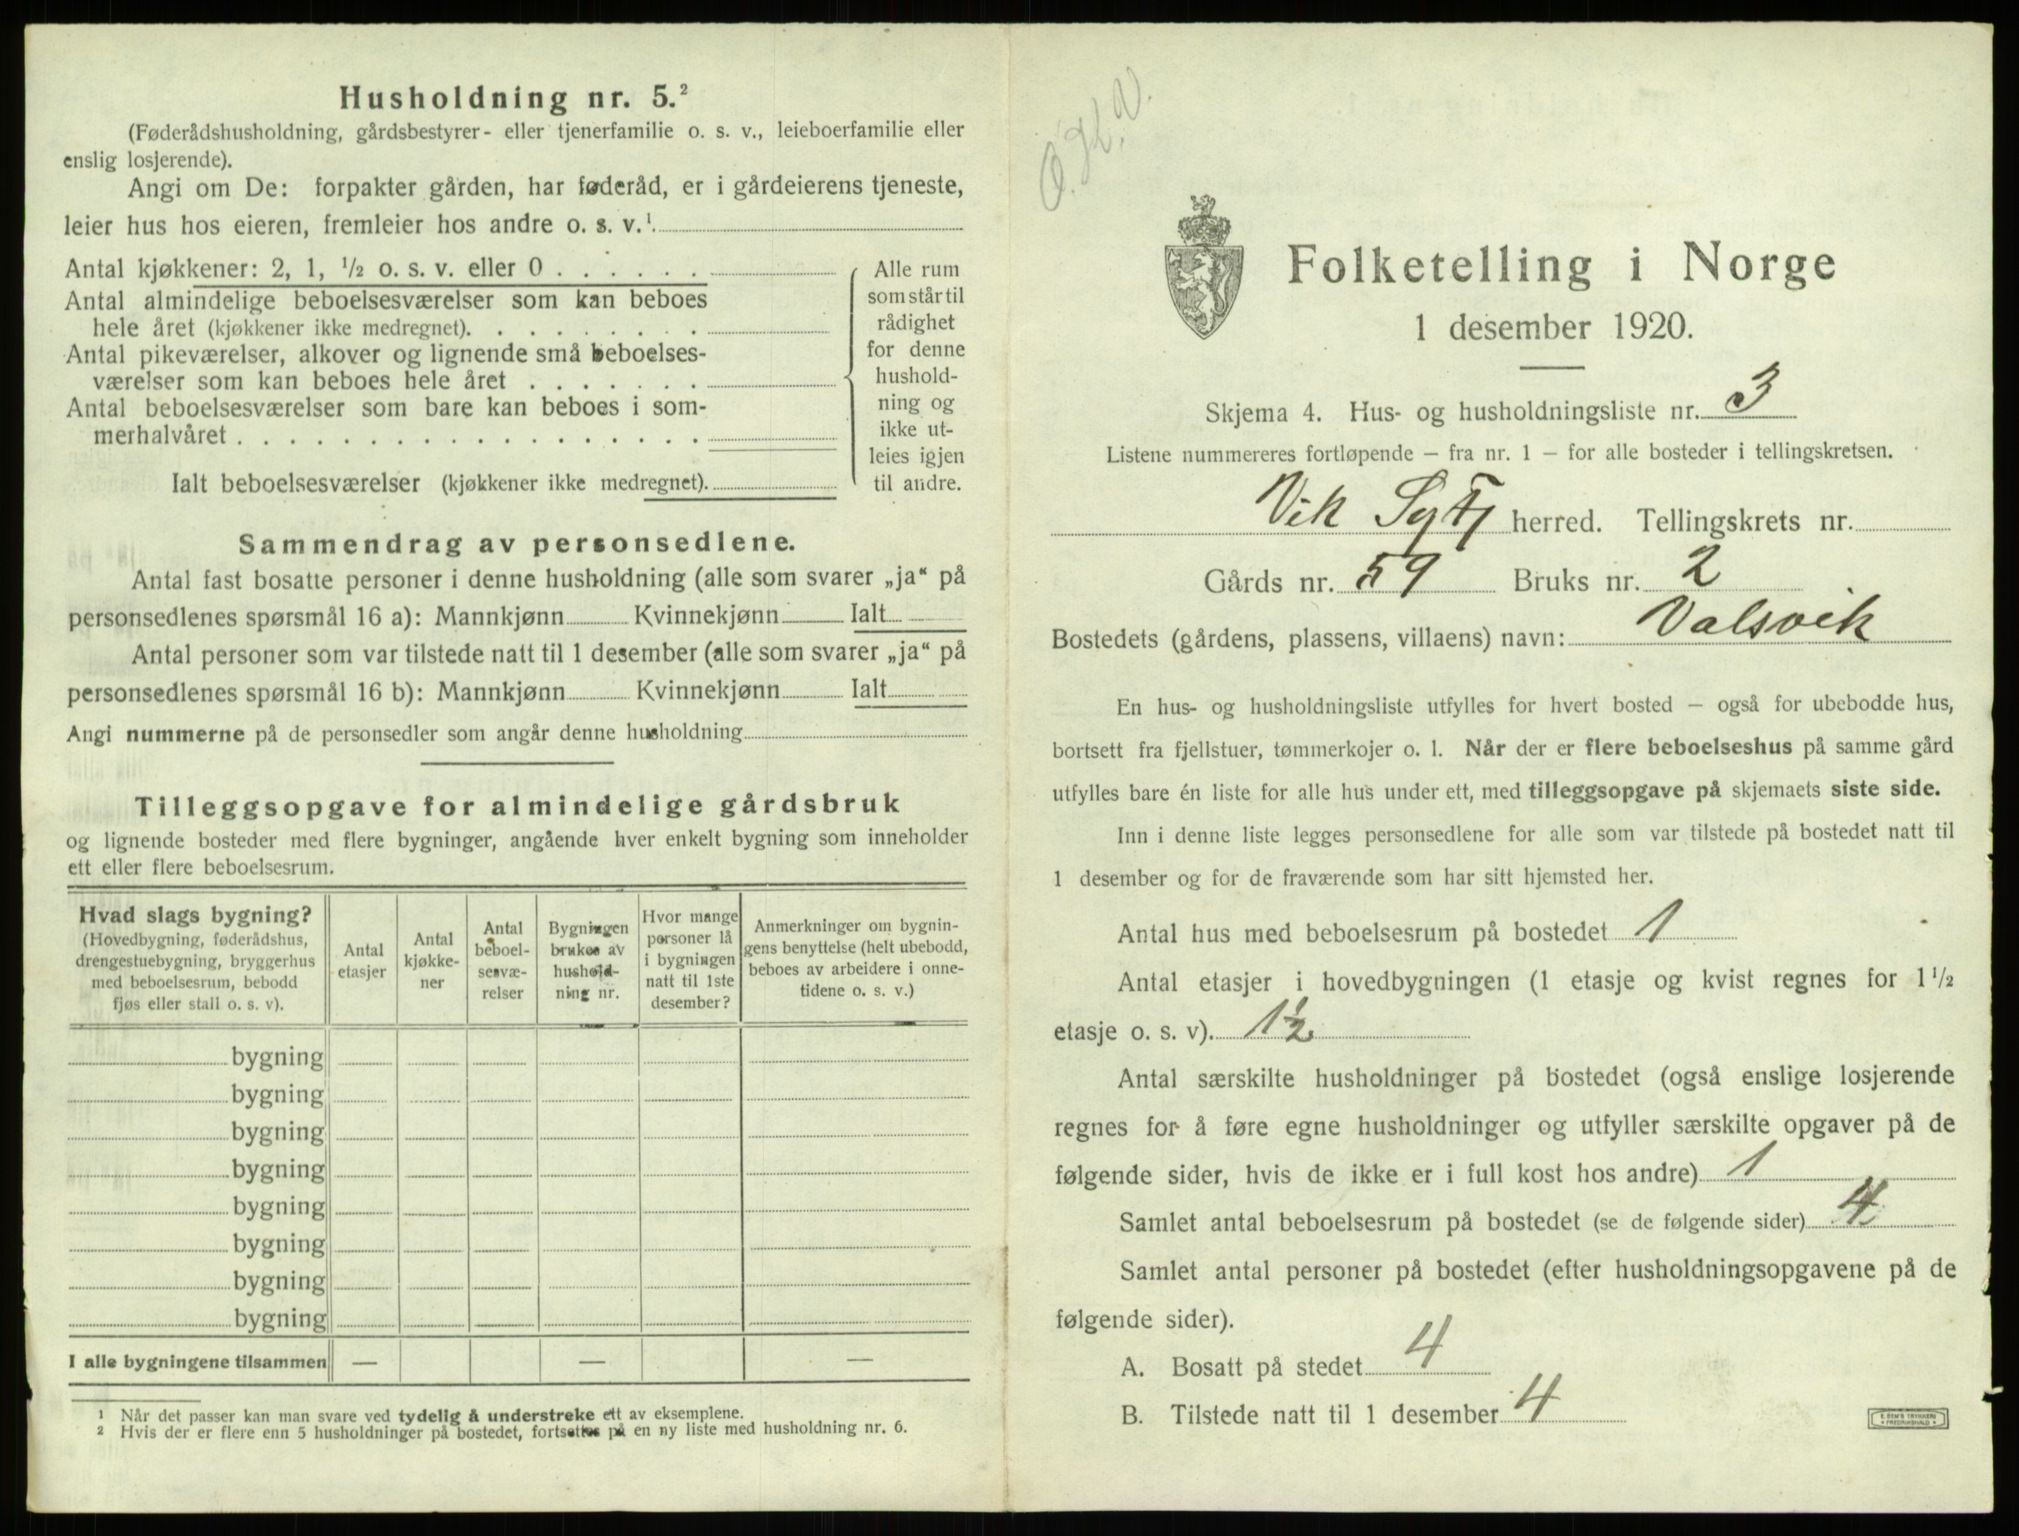 Husholdning nr. 5.²
(Føderådshusholdning, gårdsbestyrer- eller tjenerfamilie o. s. v., leieboerfamilie eller
enslig losjerende).
Angi om De: forpakter gården, har føderåd, er i gårdeierens tjeneste,
leier hus hos eieren, fremleier hos andre o. s. v.¹
Antal kjøkkener: 2, 1, ½ o. s. v. eller 0 . . . . . .
Antal almindelige beboelsesværelser som kan beboes
hele året (kjøkkener ikke medregnet). . . . . . . . .
Antal pikeværelser, alkover og lignende små beboelses-
værelser som kan beboes hele året . . . . . . .
Antal beboelsesværelser som bare kan beboes i som-
merhalvåret . . . . . . . . . . . . . . . . . .
Ialt beboelsesværelser (kjøkkener ikke medregnet).
Alle rum
som står til
rådighet
for denne
hushold-
ning og
ikke ut-
leies igjen
til andre.
Sammendrag av personsedlene.
Antal fast bosatte personer i denne husholdning (alle som svarer „ja“ på
personsedlenes spørsmål 16 a): Mannkjønn Kvinnekjønn Ialt
Antal personer som var tilstede natt til 1 desember (alle som svarer „ja“ på
personsedlenes spørsmål 16 b): Mannkjønn Kvinnekjønn Ialt
Angi nummerne på de personsedler som angår denne husholdning
Tilleggsopgave for almindelige gårdsbruk
og lignende bosteder med flere bygninger, angående hver enkelt bygning som inneholder
ett eller flere beboelsesrum.
Hvad slags bygning?
(Hovedbygning, føderådshus,
drengestuebygning, bryggerhus
med beboelsesrum, bebodd
fjøs eller stall o. s. v).
Antal
etasjer
Antal
kjøkke-
ner
Antal
beboel-
sesvæ-
relser
Bygningen
brukes av
hushold-
ning nr.
Hvor mange
personer lå
i bygningen
natt til 1ste
desember?
Anmerkninger om bygnin-
gens benyttelse (helt ubebodd,
beboes av arbeidere i onne-
tidene o. s. v.)
bygning
bygning
bygning
bygning
bygning
bygning
bygning
bygning
I alle bygningene tilsammen — — —
¹ Når det passer kan man svare ved tydelig å understreke ett av eksemplene.
² Hvis der er flere enn 5 husholdninger på bostedet, fortsettes på en ny liste med husholdning nr. 6.
O.K.V.
Folketelling i Norge
1 desember 1920.
Skjema 4. Hus- og husholdningsliste nr. 3
Listene nummereres fortløpende — fra nr. 1 — for alle bosteder i tellingskretsen.
Vik Sgfj herred. Tellingskrets nr.
Gårds nr. 59 Bruks nr. 2
Bostedets (gårdens, plassens, villaens) navn: Valsvik
En hus- og husholdningsliste utfylles for hvert bosted — også for ubebodde hus,
bortsett fra fjellstuer, tømmerkojer o. l. Når der er flere beboelseshus på samme gård
utfylles bare én liste for alle hus under ett, med tilleggsopgave på skjemaets siste side.
Inn i denne liste legges personsedlene for alle som var tilstede på bostedet natt til
1 desember og for de fraværende som har sitt hjemsted her.
Antal hus med beboelsesrum på bostedet 1
Antal etasjer i hovedbygningen (1 etasje og kvist regnes for 1½
etasje o. s. v). 1½
Antal særskilte husholdninger på bostedet (også enslige losjerende
regnes for å føre egne husholdninger og utfyller særskilte opgaver på de
følgende sider, hvis de ikke er i full kost hos andre) 1
Samlet antal beboelsesrum på bostedet (se de følgende sider) 4
Samlet antal personer på bostedet (efter husholdningsopgavene på de
følgende sider).
A. Bosatt på stedet 4
B. Tilstede natt til 1 desember 4
E. SEM'S TRYKKERI
FREDRIKSHALD